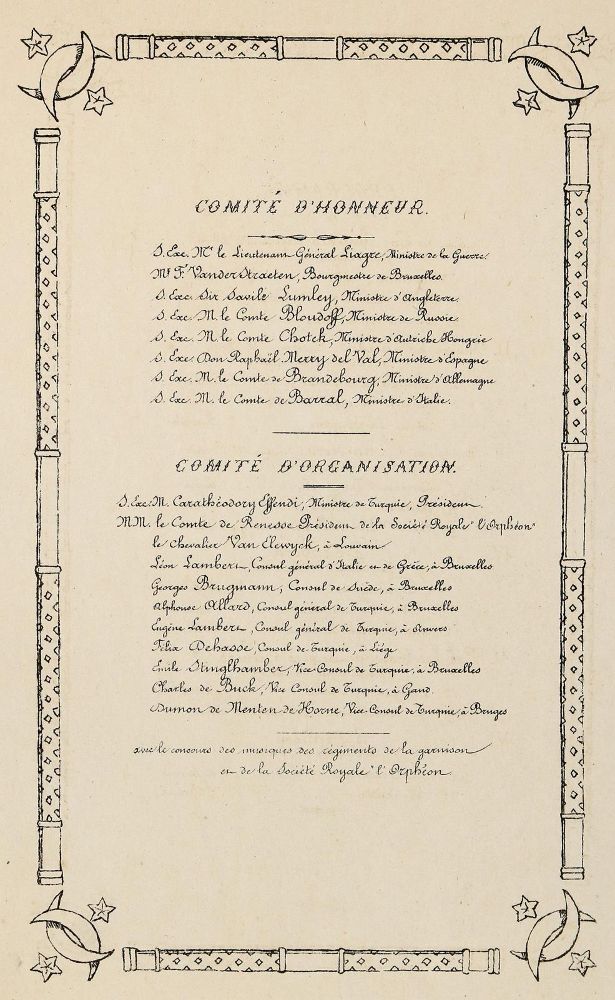 COMITÉ D'HONNEUR.
S. Exc. Mr le Lieutenant Général Liagre, Ministre de la Guerre.
Mr F. VanderStraeten, Bourgmestre de Bruxelles.
S. Exc. Sir Savile Lumley, Ministre d'Angleterre.
S. Exc. M. le Comte Bloudoff, Ministre de Russie
S. Exc. M. le Comte Chotek, Ministre d'Autriche Hongrie
S. Exc. Don Raphaël Merry del Val, Ministre d'Espagne
S. Exc. M. le Comte de Brandebourg, Ministre d'Allemagne
S. Exc. M. le Comte de Barral, Ministre d'Italie.
COMITÉ D'ORGANISATION.
S. Exc. M. Carathéodory Effendi, Ministre de Turquie, Président.
MM. le Comte de Renesse Président de la Société Royale "l'Orphéon"
le Chevalier Van Elewyck, à Louvain
Léon Lambert, Consul général d'Italie et de Grèce, à Bruxelles
Georges Brugmann, Consul de Suède, à Bruxelles
Alphonse Allard, Consul général de Turquie, à Bruxelles
Eugène Lambert, Consul général de Turquie, à Anvers
Félix Dehasse, Consul de Turquie, à Liége
Emile Stinglhamber, Vice-Consul de Turquie, à Bruxelles
Charles de Buck, Vice Consul de Turquie, à Gand.
Dumon de Menten de Horne, Vice-Consul de Turquie, à Bruges
avec le concours des musiques des régiments de la garnison
et de la Société Royale "l'Orphéon.